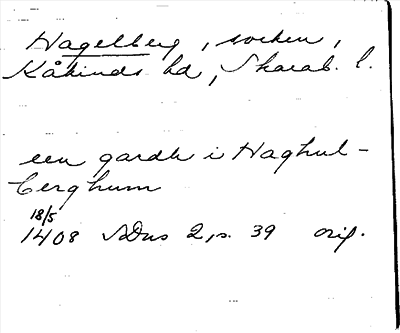 Hagelberg, socken,
Kåkinds hd, Skarab. l.
een gardh i Haghul-
berghum
18/5
1408 SDns 2, s. 39 orig.